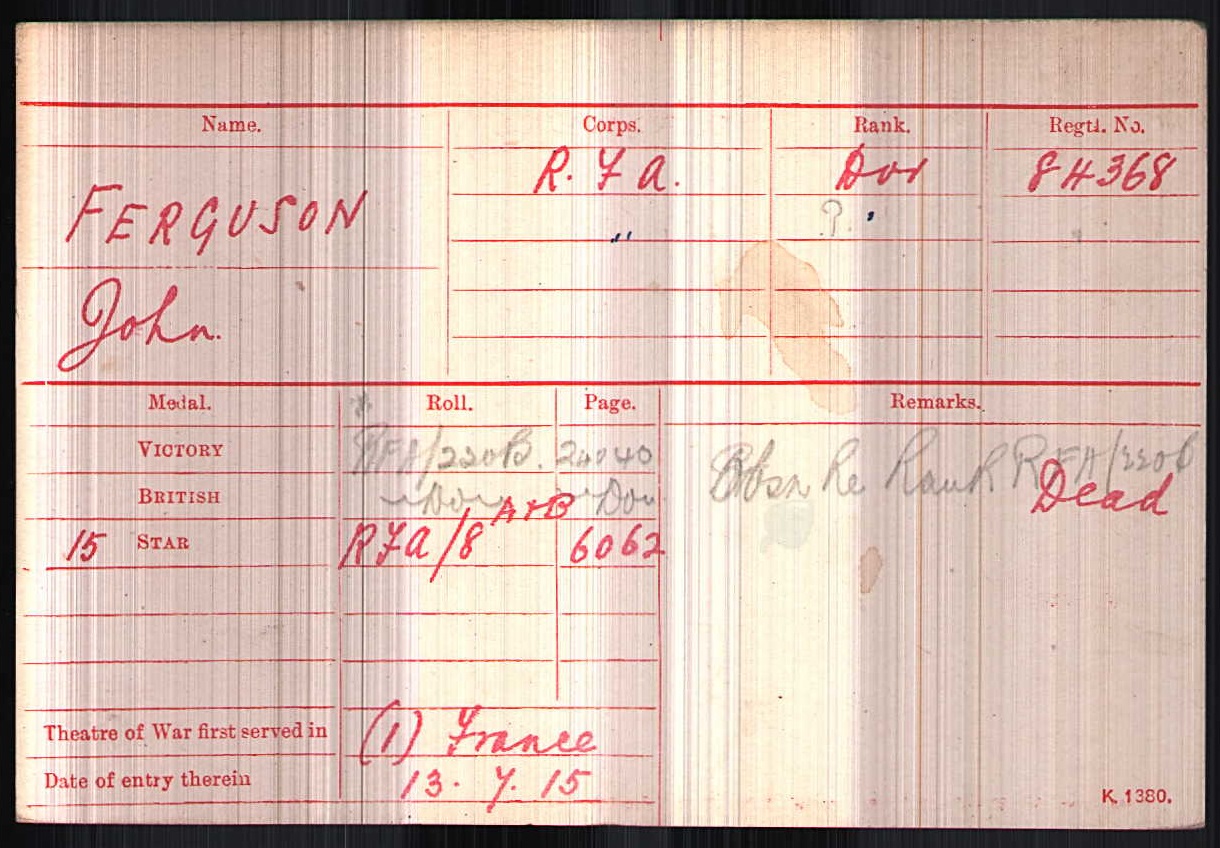 Name. Corps. Rank. Regtl. No.
R. F. A. Dvr 84368
FERGUSON P. "
"
John.
Medal. Roll. Page. Remarks.
VICTORY RFA/220B. 24040
BRITISH Do Do Dead
15 STAR RFA/8 A+B 6062
Theatre of War first served in (1) France
Date of entry therein 13. 7. 15
K. 1380.